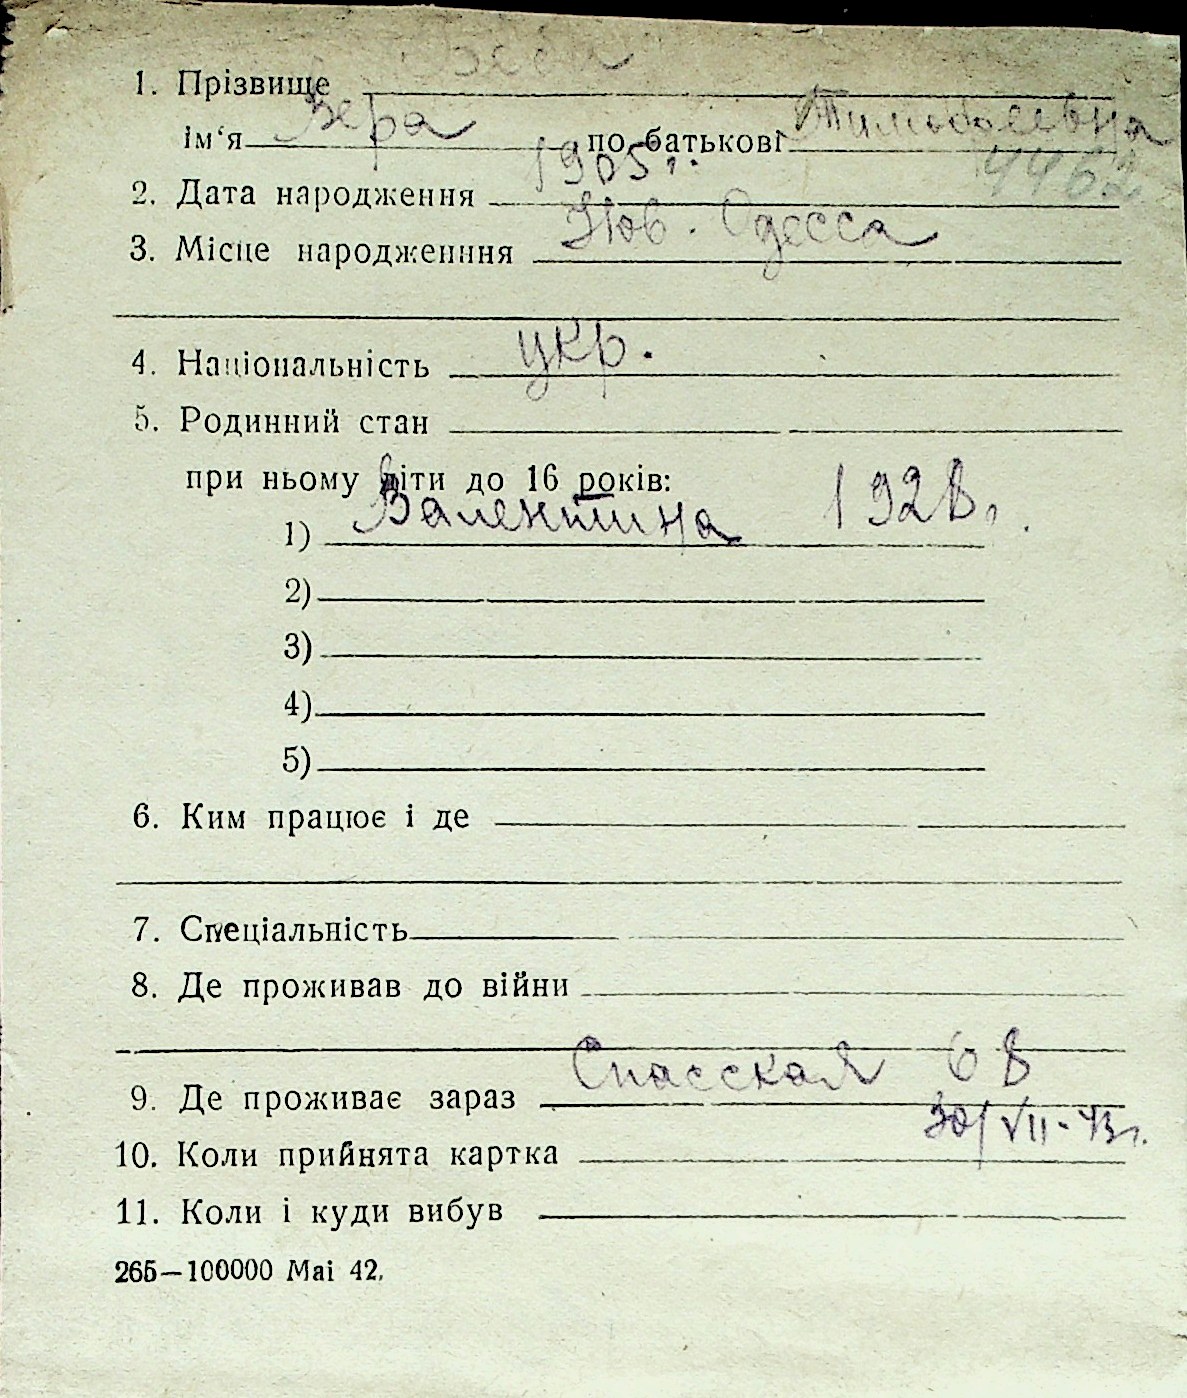 1. Прізвище
Ім‘я Вера по батькові Тимофеевна
4462
2. Дата народження 1905 г.
3. Місце народженння Нов. Одесса
4. Національність укр.
5. Родинний стан
при ньому діти до 16 років:
1) Валентина 1928 г.
2)
3)
4)
5)
6. Ким працює і де
7. Спеціальність
8. Де проживав до війни
9. Де проживає зараз Спасская 68
10. Коли прийнята картка 30/VII-43 г.
11. Коли і куди вибув
265—100000 Mai 42.